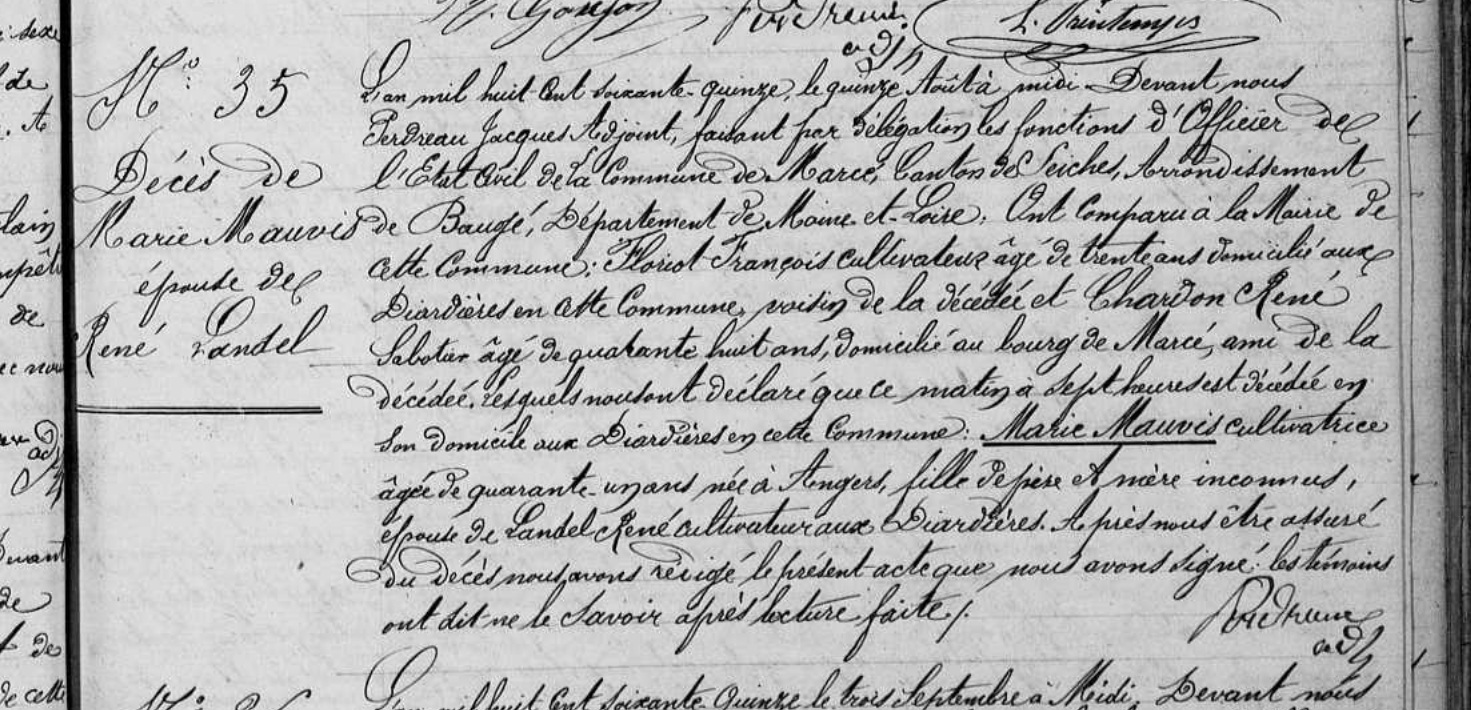 L. Printemps
adj
N° 35
Décès de
Marie Mauvis
épouse de
René Landel
L'an mil huit cent soixante-quinze, le quinze Août à midi. Devant nous
Perdreau Jacques Adjoint, faisant par délégation les fonctions d'Officier de
l'Etat Civil de la Commune de Marcé, Canton de Seiches, Arrondissement
de Baugé, Département de Maine-et-Loire. Ont comparu à la Mairie de
cette Commune: Floriot François cultivateur âgé de trente ans domicilié aux
Diardières en cette Commune, voisin de la décédée et Chardon René
Sabotier âgé de quarante huit ans, domicilié au bourg de Marcé, ami de la
décédée. Lesquels nous ont déclaré que ce matin à sept heures est décédée en
son domicile aux Diardières en cette Commune: Marie Mauvis cultivatrice
âgée de quarante-un ans née à Angers, fille de père et mère inconnus,
épouse de Landel René cultivateur aux Diardières. Après nous être assuré
du décès nous avons rédigé le présent acte que nous avons signé: les témoins
ont dit ne le savoir après lecture faite /.
Perdreau
adj
L'an mil huit cent soixante-Quinze le trois Septembre à Midi. Devant nous